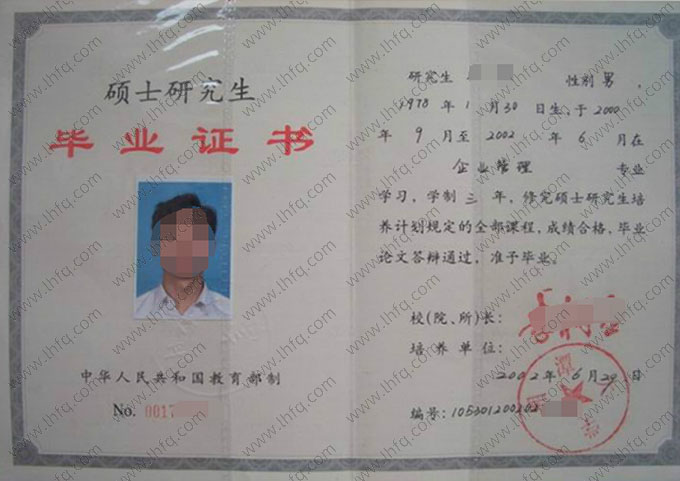 硕士研究生
毕业证书
中华人民共和国教育部制
No. 0017
研究生 性别 男 ,
1978 年 1 月 30 日生,于 2000
年 9 月至 2002 年 6 月在
企业管理 专业
学习,学制 三 年,修完硕士研究生培
养计划规定的全部课程,成绩合格,毕业
论文答辩通过,准予毕业。
校(院、所)长:
培养单位:
2002 年 6 月 29 日
编号:105301200202
www.lhfq.com